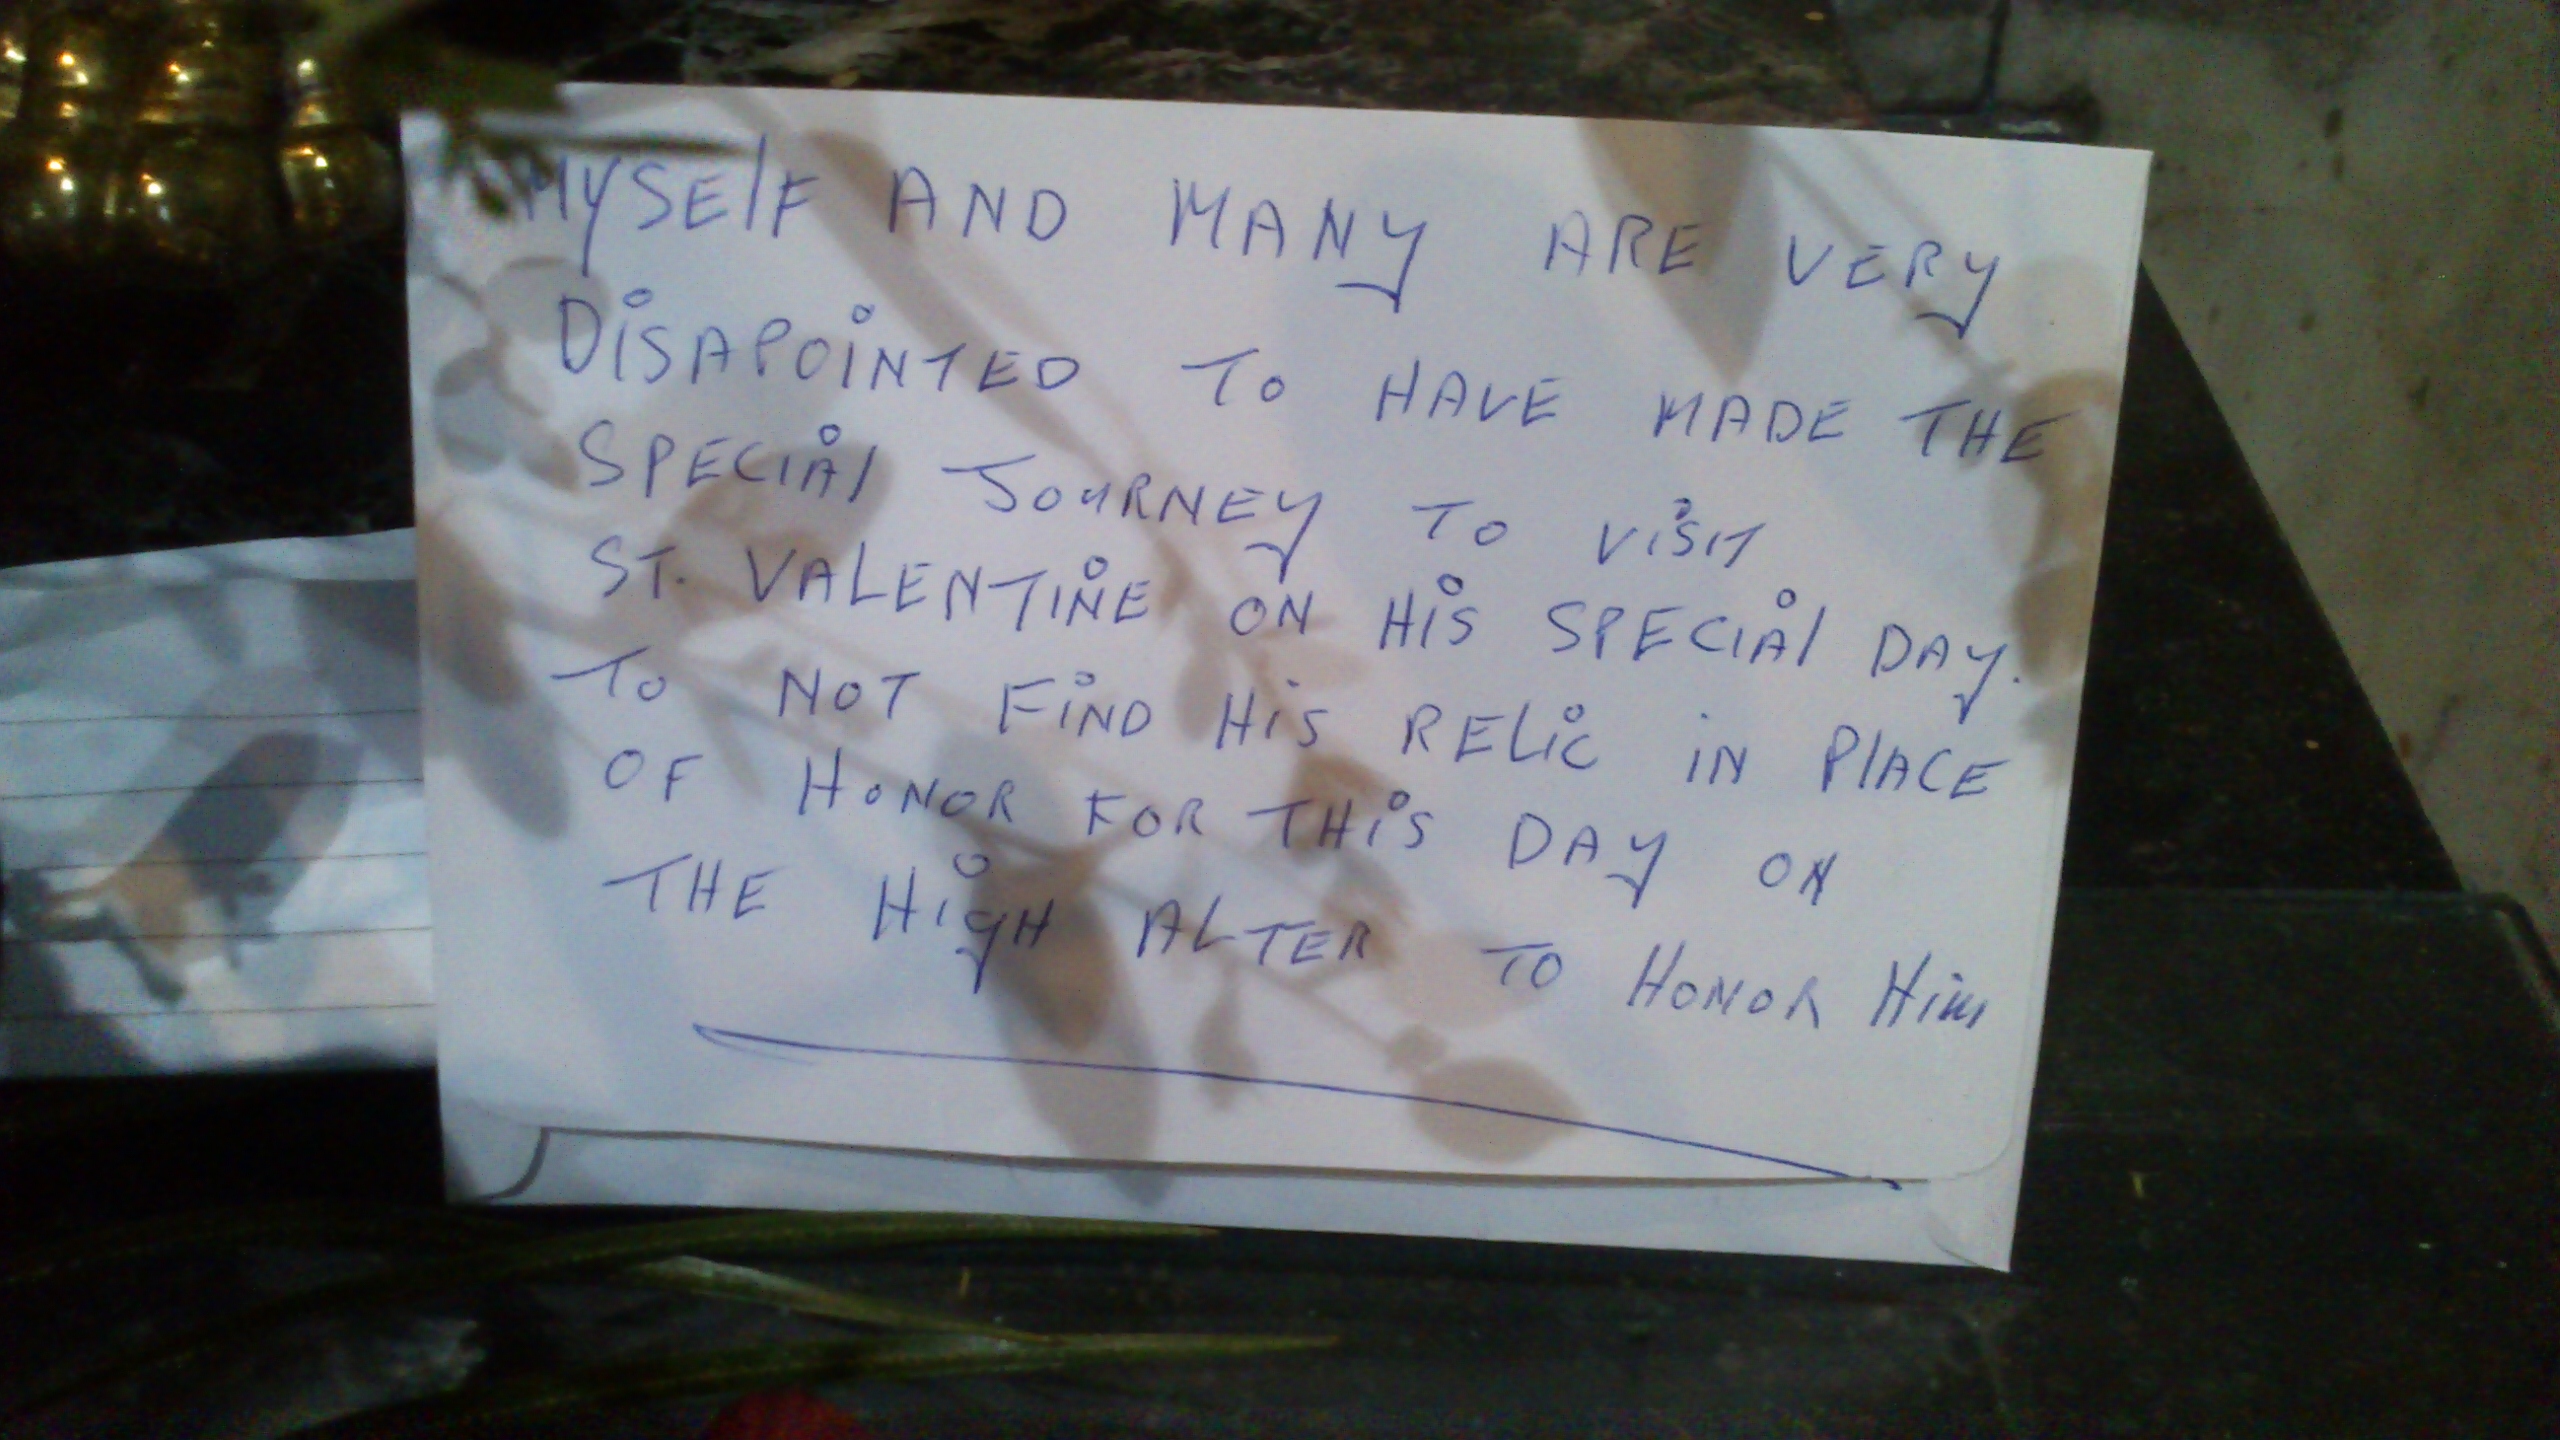 MYSElF AND MANY ARE VERY
DISAPOINTED TO HAVE MADE THE
SPECIAl JOURNEY TO VISIT
ST. VALENTINE ON HIS SPECIAl DAY.
TO NOT FIND HIS RELIC IN PlACE
OF HONOR FOR THIS DAY ON
THE HIGH ALTER TO HONOR HIM